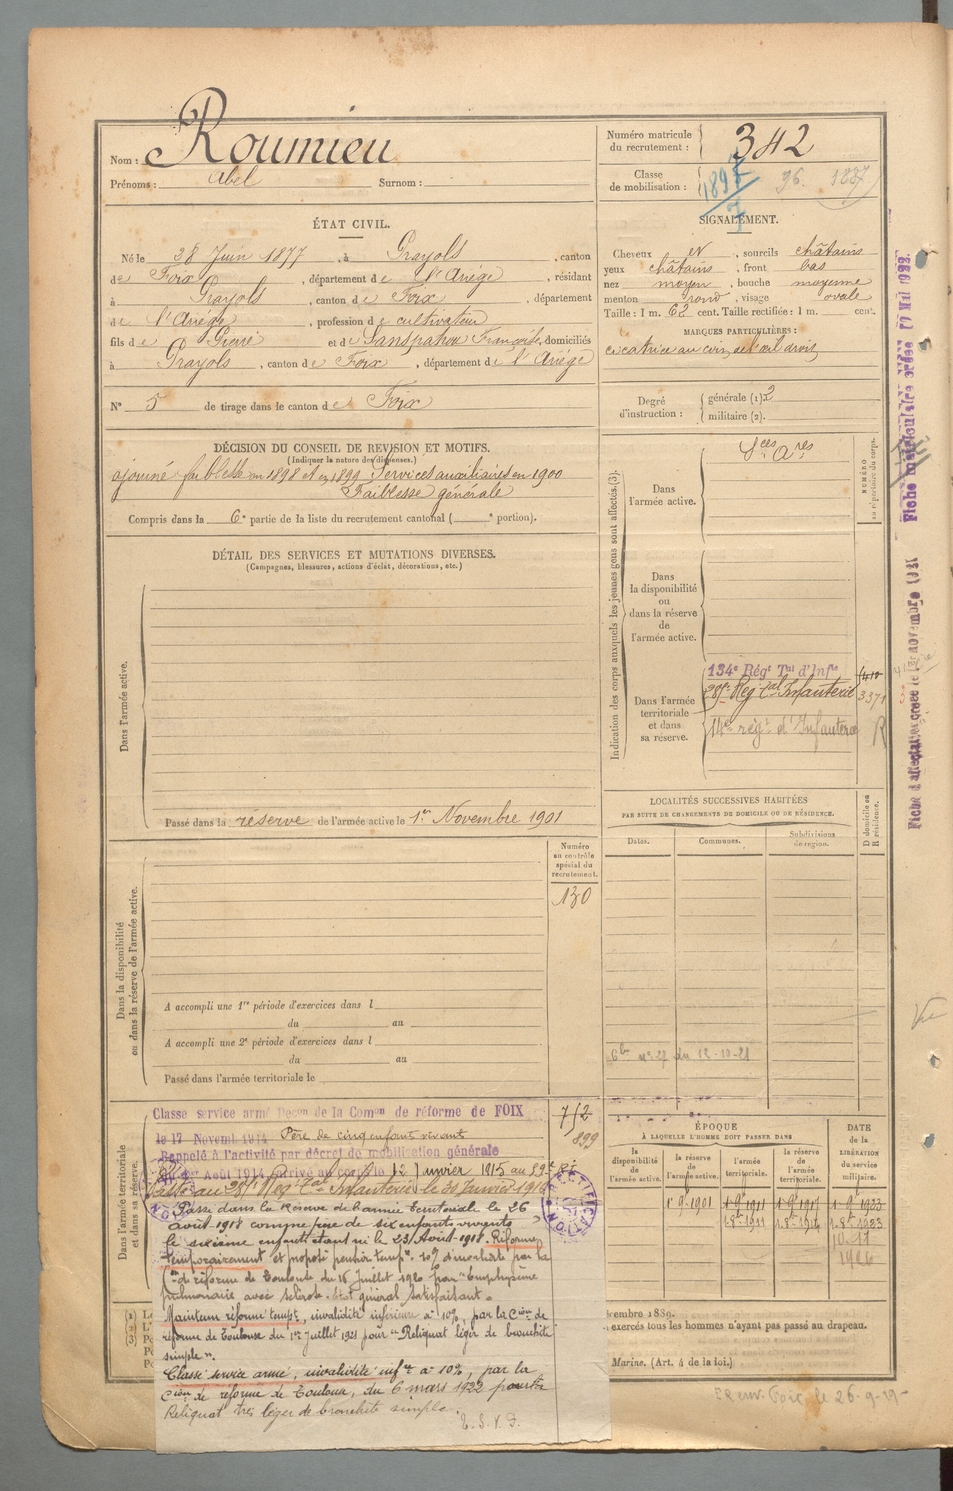 Nom : Roumieu
Prénoms : Abel Surnom :
Numéro matricule du recrutement : 342
Classe de mobilisation : 1897 96. 1897
ÉTAT CIVIL.
Né le 28 Juin 1877, à Prayols, canton
de Foix, département de l'Ariége, résidant
à Prayols, canton de Foix, département
de l'Ariége, profession de cultivateur
fils de Pierre et de Sanspahou Françoise, domiciliés
à Prayols, canton de Foix, département de l'Ariége
N° 5 de tirage dans le canton de Foix
SIGNALEMENT.
Cheveux et, sourcils châtains
yeux châtains, front bas
nez moyen, bouche moyenne
menton rond, visage ovale
Taille : 1 m. 62 cent. Taille rectifiée : 1 m. cent.
MARQUES PARTICULIÈRES :
cicatrice au coin de l'œil droit
Degré d'instruction : générale (1) 2
militaire (2).
DÉCISION DU CONSEIL DE REVISION ET MOTIFS.
(Indiquer la nature des dispenses.)
ajourné faiblesse en 1898 et en 1899 Services auxiliaires en 1900
Faiblesse générale
Compris dans la 6e partie de la liste du recrutement cantonal ( e portion).
DÉTAIL DES SERVICES ET MUTATIONS DIVERSES.
(Campagnes, blessures, actions d'éclat, décorations, etc.)
Dans l'armée active.
Passé dans la réserve de l'armée active le 1er Novembre 1901
Indication des corps auxquels les jeunes gens sont affectés.(3).
NUMÉRO au répertoire du corps.
Dans l'armée active.
Sces Ares
Dans la disponibilité ou dans la réserve de l'armée active.
Dans l'armée territoriale et dans sa réserve.
134e Régt Tal d'Infie
Reg Tal Infanterie 3371
14e régt d'Infanterie R
LOCALITÉS SUCCESSIVES HABITÉES
PAR SUITE DE CHANGEMENTS DE DOMICILE OU DE RÉSIDENCE.
Dates. Communes. Subdivisions de région. D domicile ou R résidence.
Dans la disponibilité ou dans la réserve de l'armée active.
Numéro au contrôle spécial du recrutement.
130
A accompli une 1re période d'exercices dans l
du au
A accompli une 2e période d'exercices dans l
du au
Passé dans l'armée territoriale le
du 12-10-21
Dans l'armée territoriale et dans sa réserve.
Classe service armé Decon de la Comon de réforme de FOIX
le 17 Novemt 1914 Père de cinq enfants vivants
Rappelé à l'activité par décret de mobilisation générale
Août 1914 arrivé au corps le 12 Janvier 1915 au 89e
Passé au Reg Tal Infanterie le 30 Janvier 1916
Passé dans la Réserve de l'armée Territoriale le 26
août 1918 comme père de six enfants vivants
le sixième enfant étant né le 23 Août 1918. Réformé
temporairement et proposé pension tempre 10% d'invalidité par la
Con de réforme de Toulouse du 16 Juillet 1920 pour "Emphysème
pulmonaire avec sclérose. état général satisfaisant".
Maintenu réformé tempt, invalidité inférieure à 10%, par la Cion de
réforme de Toulouse du 1er Juillet 1921 pour "Reliquat léger de bronchite
simple".
Classé service armé, invalidité infre à 10%, par la
Cion de réforme de Toulouse, du 6 mars 1922 pour
Reliquat très léger de bronchite simple.
RECTIFICATION
ÉPOQUE
À LAQUELLE L'HOMME DOIT PASSER DANS
la disponibilité de l'armée active. la réserve de l'armée active. l'armée territoriale. la réserve de l'armée territoriale.
DATE de la LIBÉRATION du service militaire.
1 9bre 1901 1 9bre 1911 1 9bre 1917 1 9bre 1923
1926
cembre 1889.
exercés tous les hommes n'ayant pas passé au drapeau.
Marine, (Art. 4 de la loi.)
Foix, le 26-9-
Fiche matriculaire créée
Fiche d'affectation créée le Novembre 1921